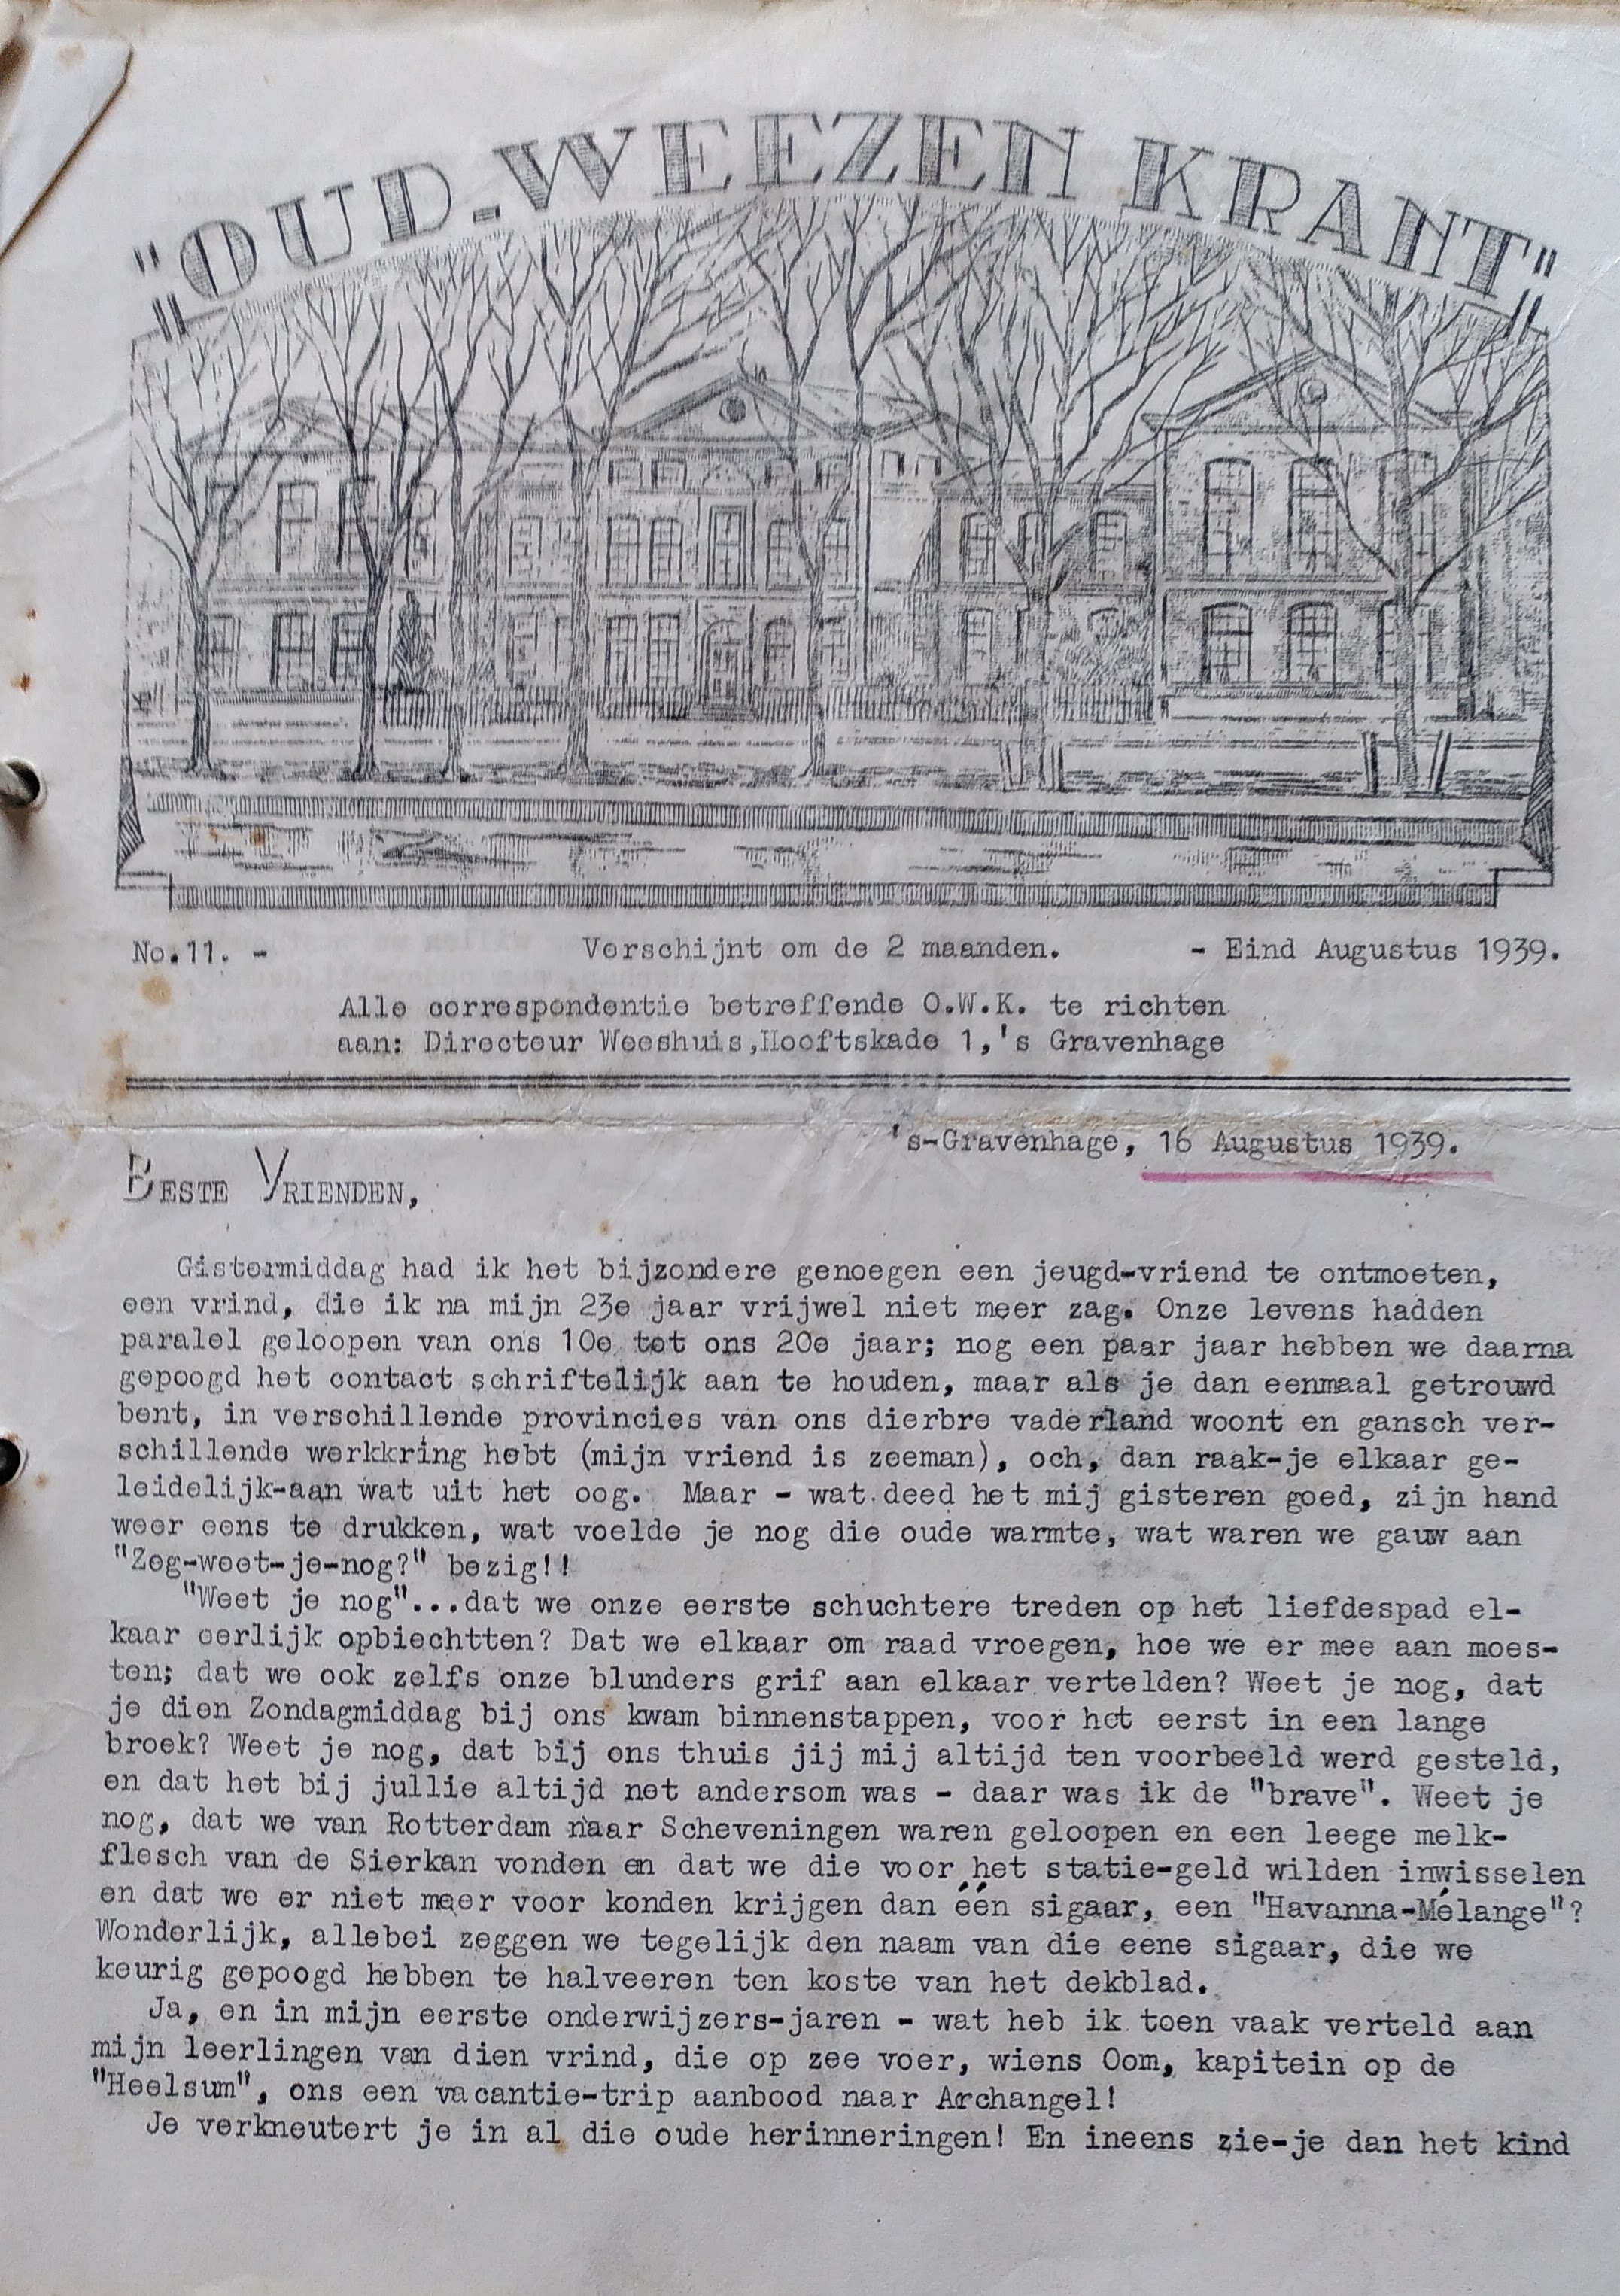 "OUD-WEEZEN KRANT"
No.11. - Verschijnt om de 2 maanden. - Eind Augustus 1939.
Alle correspondentie betreffende O.W.K. te richten
aan: Directeur Weeshuis,Hooftskade 1,'s Gravenhage
's-Gravenhage, 16 Augustus 1939.
BESTE VRIENDEN,
Gistermiddag had ik het bijzondere genoegen een jeugd-vriend te ontmoeten,
een vrind, die ik na mijn 23e jaar vrijwel niet meer zag. Onze levens hadden
paralel geloopen van ons 10e tot ons 20e jaar; nog een paar jaar hebben we daarna
gepoogd het contact schriftelijk aan te houden, maar als je dan eenmaal getrouwd
bent, in verschillende provincies van ons dierbre vaderland woont en gansch ver-
schillende werkkring hebt (mijn vriend is zeeman), och, dan raak-je elkaar ge-
leidelijk-aan wat uit het oog. Maar - wat deed het mij gisteren goed, zijn hand
weer eens te drukken, wat voelde je nog die oude warmte, wat waren we gauw aan
"Zeg-weet-je-nog?" bezig!!
"Weet je nog"...dat we onze eerste schuchtere treden op het liefdespad el-
kaar eerlijk opbiechtten? Dat we elkaar om raad vroegen, hoe we er mee aan moes-
ten; dat we ook zelfs onze blunders grif aan elkaar vertelden? Weet je nog, dat
je dien Zondagmiddag bij ons kwam binnenstappen, voor het eerst in een lange
broek? Weet je nog, dat bij ons thuis jij mij altijd ten voorbeeld werd gesteld,
en dat het bij jullie altijd net andersom was - daar was ik de "brave". Weet je
nog, dat we van Rotterdam naar Scheveningen waren geloopen en een leege melk-
flesch van de Sierkan vonden en dat we die voor het statie-geld wilden inwisselen
en dat we er niet meer voor konden krijgen dan één sigaar, een "Havanna-Mélange"?
Wonderlijk, allebei zeggen we tegelijk den naam van die eene sigaar, die we
keurig gepoogd hebben te halveeren ten koste van het dekblad.
Ja, en in mijn eerste onderwijzers-jaren - wat heb ik toen vaak verteld aan
mijn leerlingen van dien vrind, die op zee voer, wiens Oom, kapitein op de
"Heelsum", ons een vacantie-trip aanbood naar Archangel!
Je verkneutert je in al die oude herinneringen! En ineens zie-je dan het kind